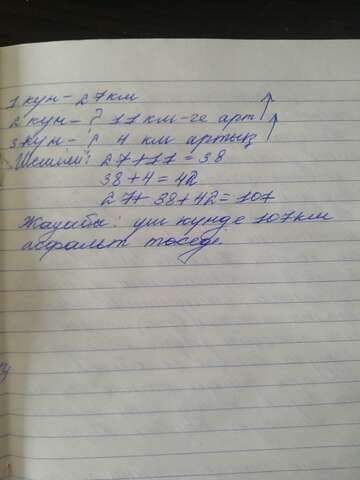 1 күн - 27 км
2 күн - ? 11 км-ге арт
3 күн - ? 4 км артық
Шешімі: 27+11=38
38+4=42
27+38+42=107
Жауабы: үш күнде 107 км
асфальт төседі.